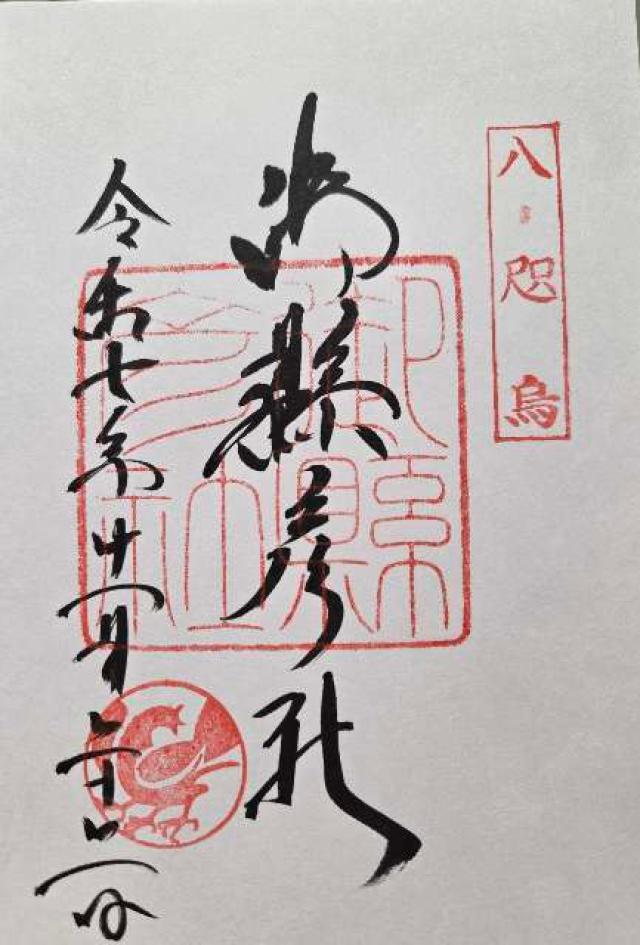 八咫烏
御縣彦社
令和七年十一月二十日
御縣彦社